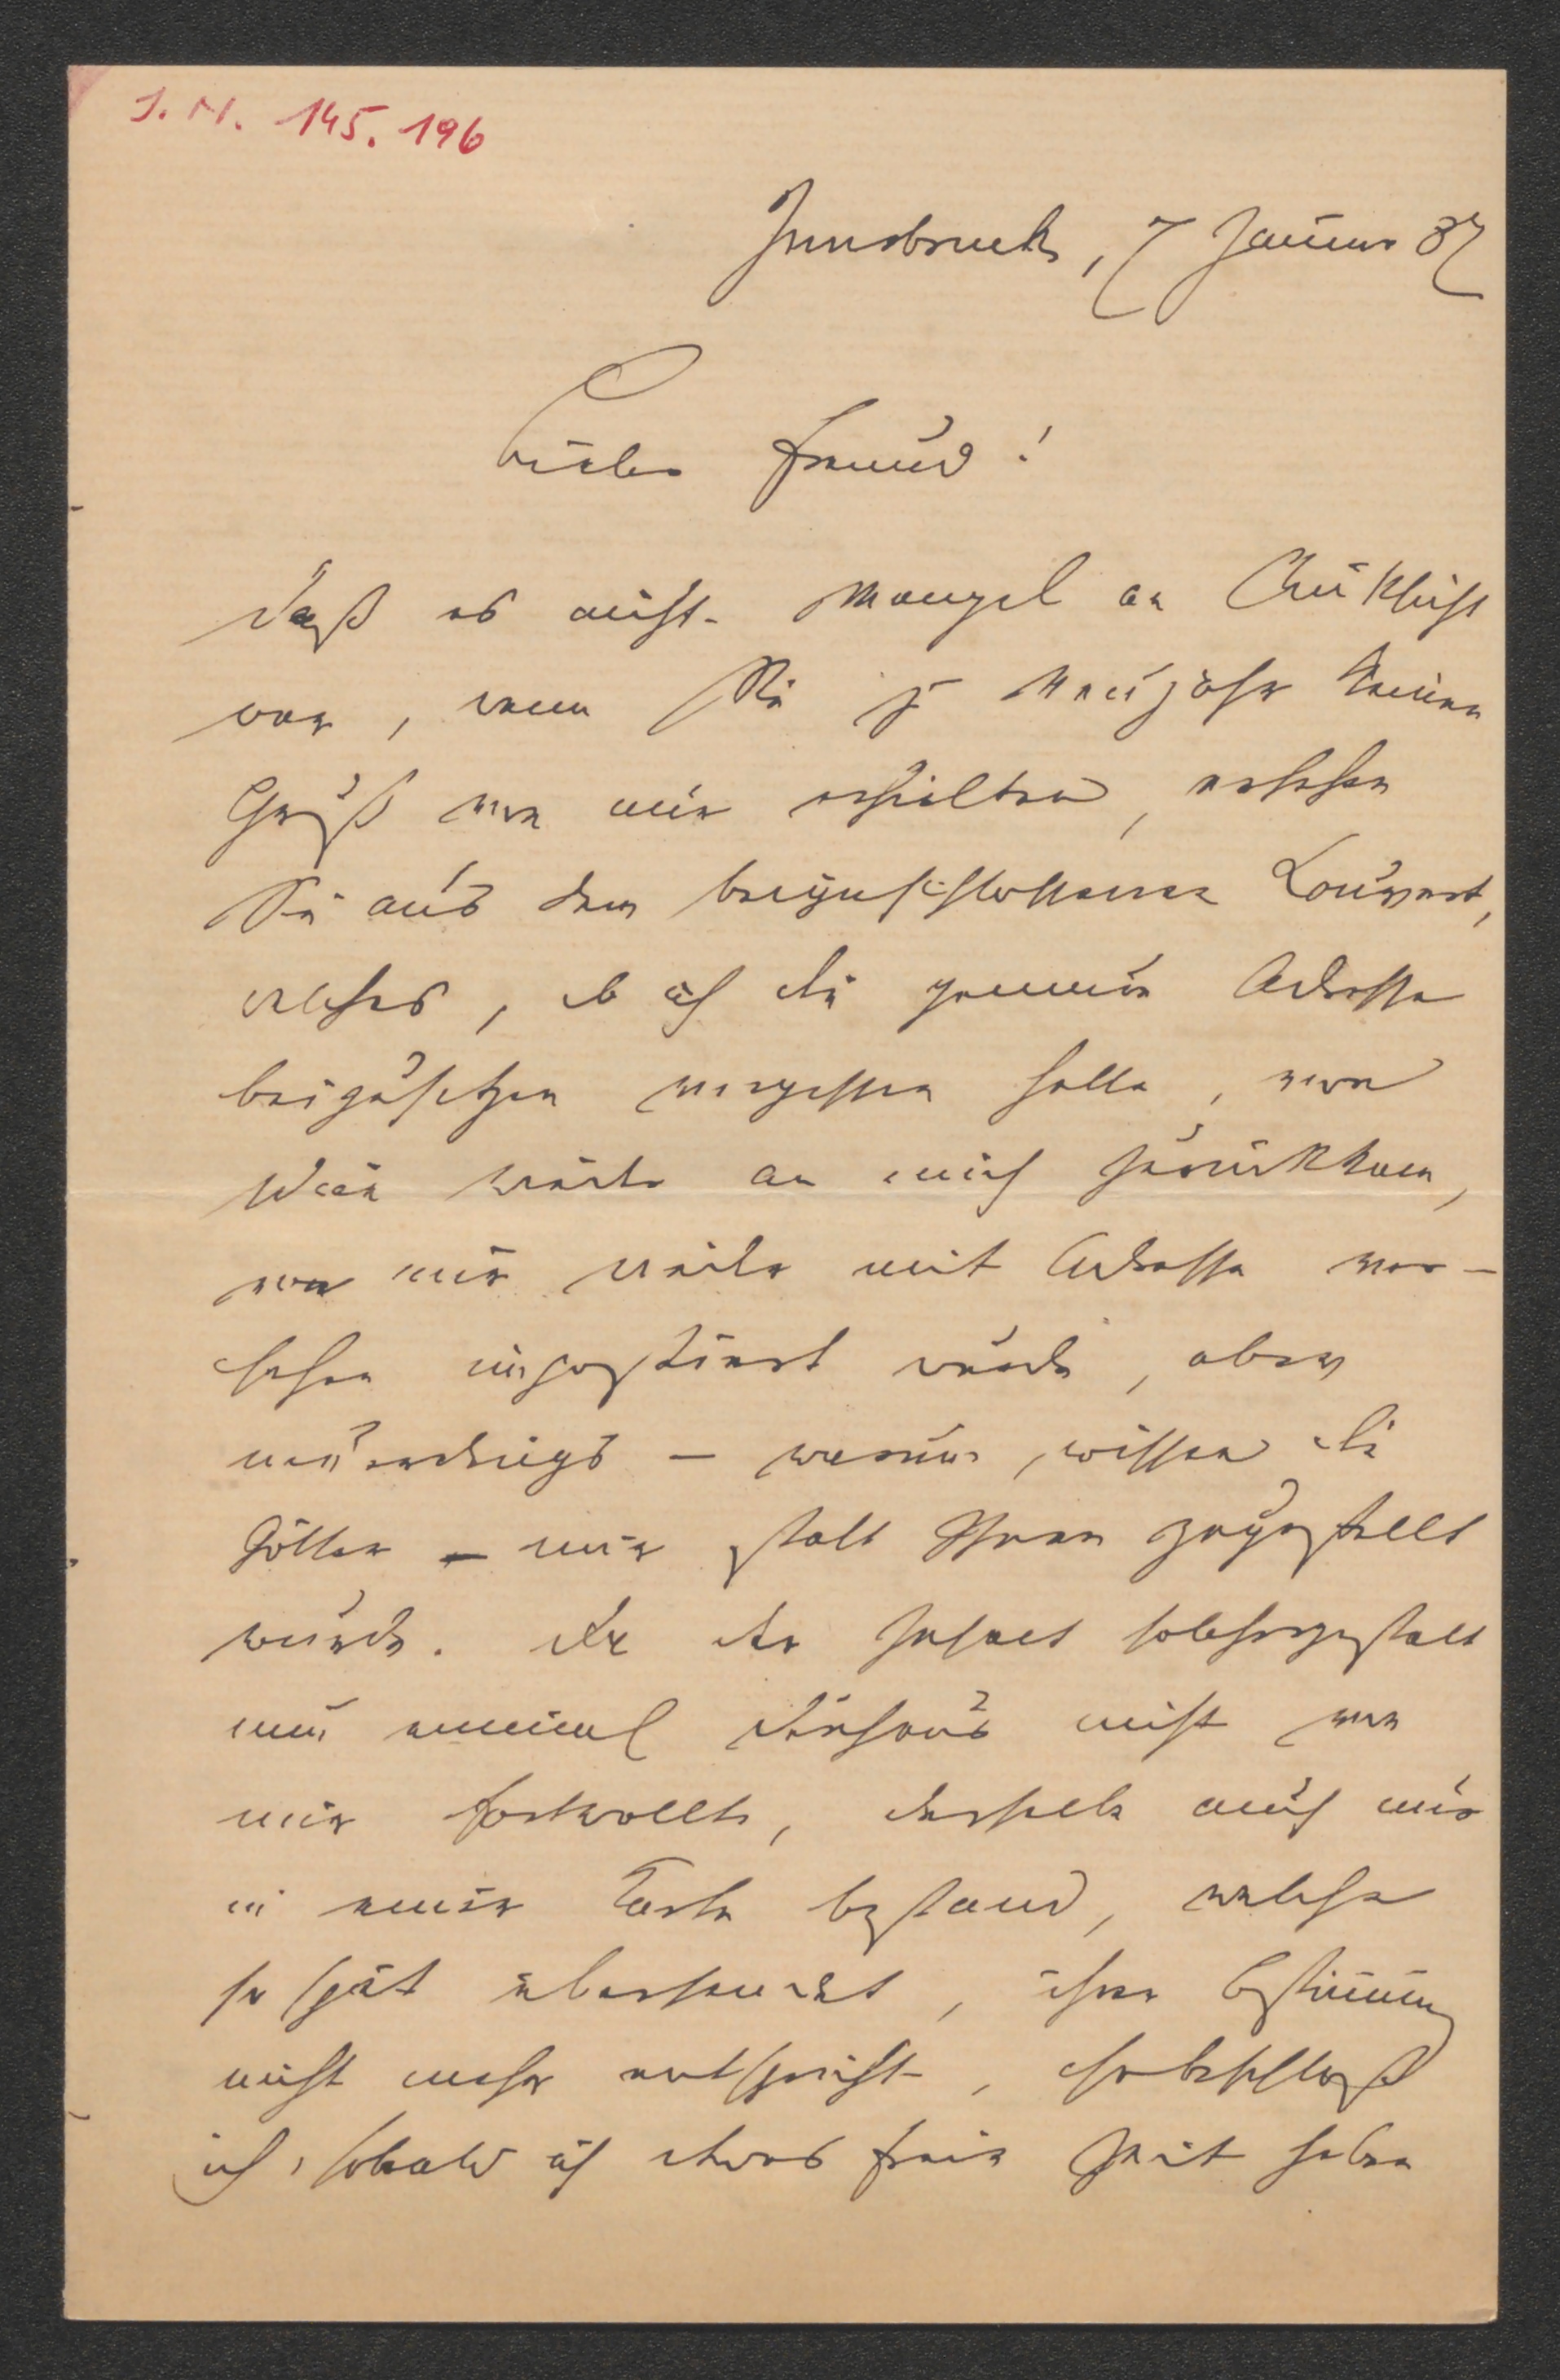 I. N. 145.196
Innsbruck, 7 Januar 87
Lieber Freund!
Daß es nicht Mangel an
war, wenn Sie zu Neujahr keinen
Gruß von mir erhielten, ersehen
Sie aus dem beigeschlossenen Couvert,
welches, da ich die genaue Adresse
beizusetzen vergessen hatte, von
Wien wieder an mich zurückkam,
von mir wieder mit Adresse ver-
sehen wurde, aber
neuerdings – warum, wissen die
Götter – mir statt Ihnen zugestellt
wurde. Da der Inhalt solchergestalt
nun einmal durchaus nicht von
mir fortwollte, derselbe auch nur
in einer Karte bestand, welche
so spät übersendet, ihrer Bestimmung
nicht mehr entspricht, so beschloß
ich, sobald ich etwas freie Zeit haben